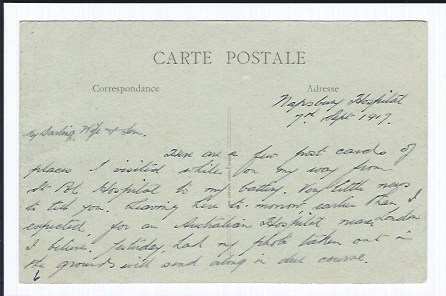 CARTE POSTALE
Correspondance
Adresse
Napsbury Hospital
7th Sept 1917.
My Darling Wife & Son.
Here are a few post cards of
places I visited while on my way from
St. Pol Hospital to my battery. Very little news
to tell you. Leaving here to-morrow, earlier than I
expected, for an Australian Hospital near London
I believe. Yesterday, had my photo taken out in
the grounds will send along in due course.